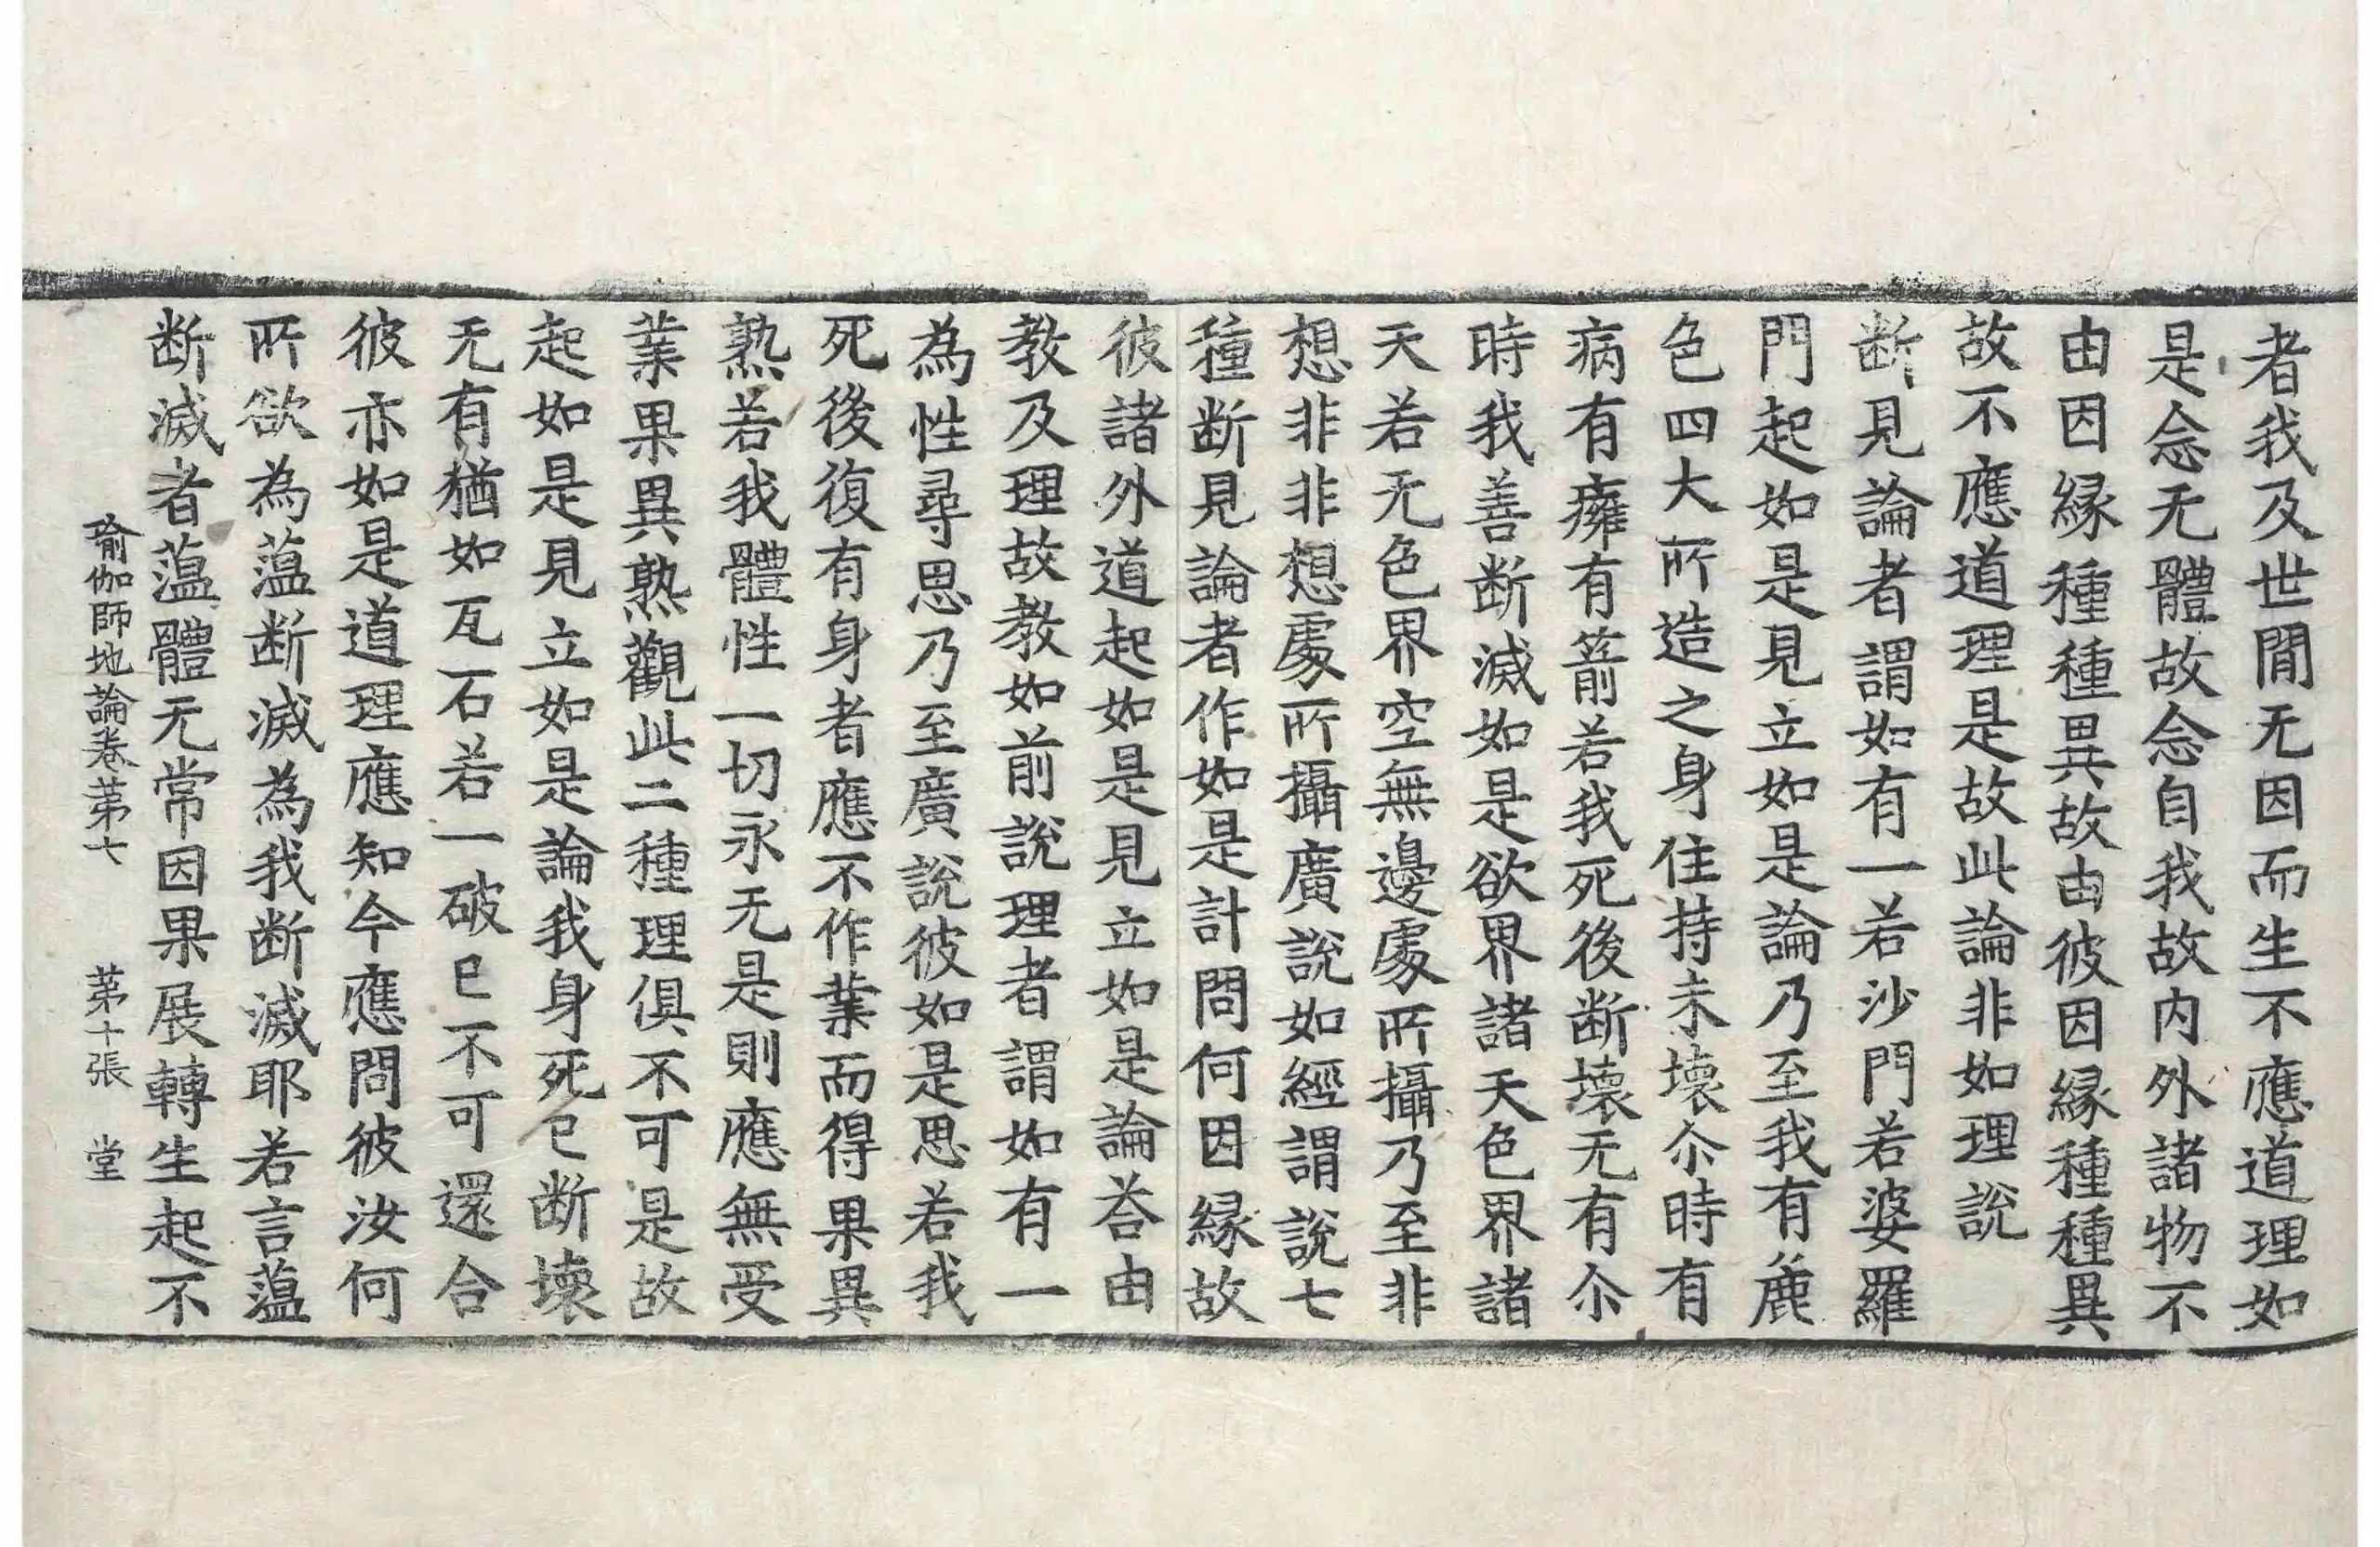 者我及世閒无因而生不應道理如
是念无體故念自我故内外諸物不
由因緣種種異故由彼因緣種種異
故不應道理是故此論非如理說
断見論者謂如有一若沙門若婆羅
門起如是見立如是論乃至我有麁
色四大所造之身住持未壞尒時有
病有癰有箭若我死後断壞无有尒
時我善断滅如是欲界諸天色界諸
天若无色界空無邊處所攝乃至非
想非非想處所攝廣說如經謂說七
種断見論者作如是計問何因緣故
彼諸外道起如是見立如是論荅由
教及理故教如前說理者謂如有一
為性尋思乃至廣說彼如是思若我
死後復有身者應不作業而得果異
熟若我體性一切永无是則應無受
業果異熟觀此二種理俱不可是故
起如是見立如是論我身死已断壞
无有猶如瓦石若一破已不可還合
彼亦如是道理應知今應問彼汝何
所欲為蕰断滅為我断滅耶若言蕰
断滅者蕰體无常因果展轉生起不
瑜伽師地論卷苐七 苐十張 堂